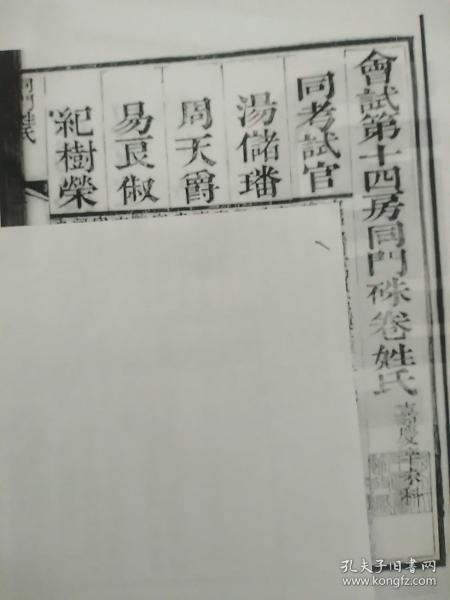 會試第十四房同門硃卷姓氏 嘉慶辛未科
同考試官
湯儲璠
周天爵
易良俶
紀樹榮
孔夫子旧书网
www.kongfz.com